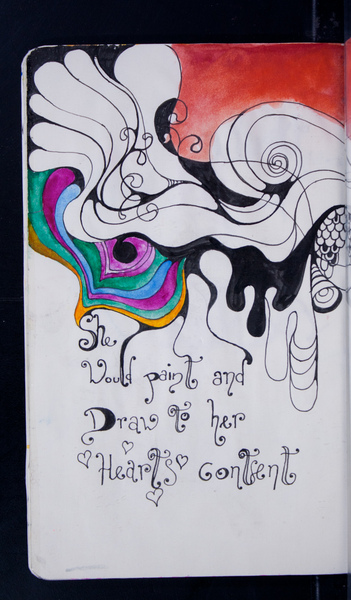 She
Would paint and
Draw to her
Hearts content